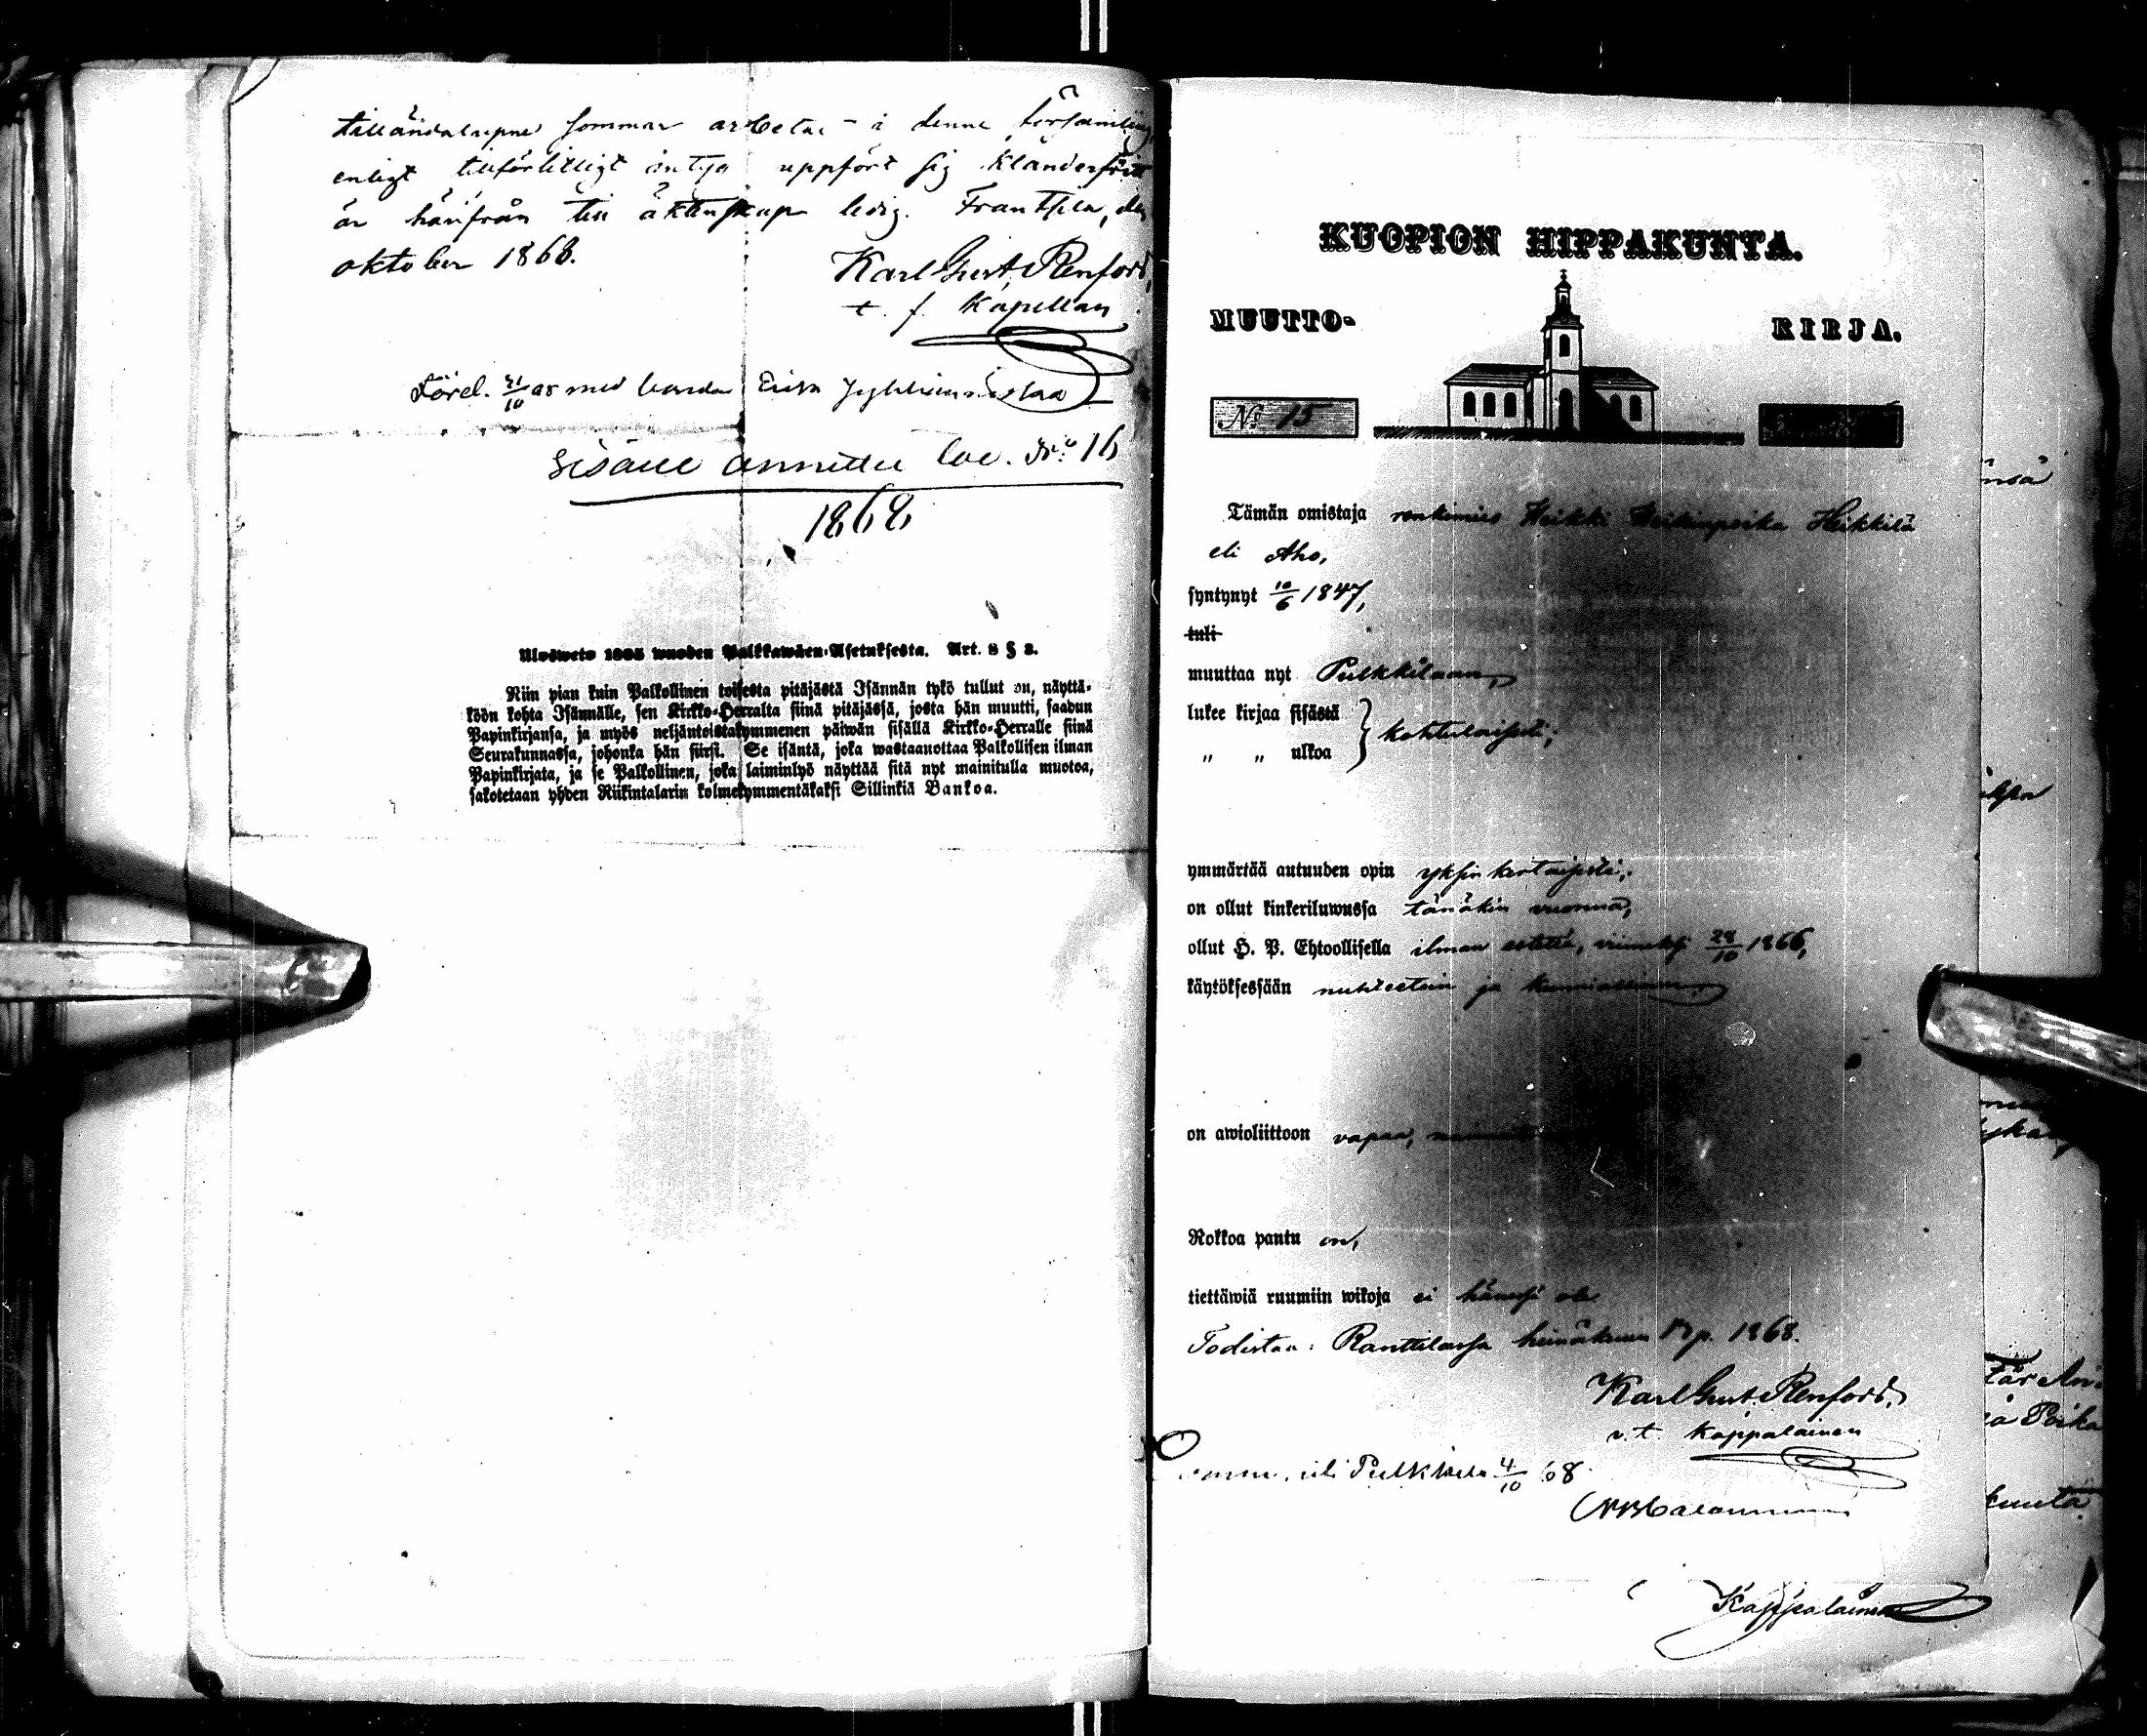 tilländalupne sommar arbetat i denne församling,
enligt tillförlitligt intyg uppfört sig klanderfritt
är härifrån till äktenskap ledig. Frantsila, den
oktober 1868.
Karl Gust. Renfors,
t. f. Kapellan
Lörd. 31/10 68 med bonda Erisa
Sisälle annettu N:o 16
1868
Ulosweto 1805 wuoden Palkkawäen-Asetuksesta. Art. 8 § 2.
Niin pian kuin Palkollinen toisesta pitäjästä Isännän tykö tullut on, näyttä-
köön kohta Isännälle, sen Kirkko-Herralta siinä pitäjässä, josta hän muutti, saadun
Papinkirjansa, ja myös neljäntoistakymmenen päiwän sisällä Kirkko-Herralle siinä
Seurakunnassa, johonka hän siirsi. Se isäntä, joka wastaanottaa Palkollisen ilman
Papinkirjata, ja se Palkollinen, joka laiminlyö näyttää sitä nyt mainitulla muotoa,
sakotetaan yhden Riikintalarin kolmekymmentäkaksi Sillinkiä Bankoa.
KUOPION HIPPAKUNTA.
MUUTTO- KIRJA.
No 15
Tämän omistaja renkimies Heikki Heikinpoika Heikkilä
eli Aho,
syntynyt 10/6 1847,
tuli
muuttaa nyt Pulkkilaan,
lukee kirjaa sisästä
" " ulkoa } kohtalaisesti;
ymmärtää autuuden opin yksinkertaisesti;
on ollut kinkeriluwussa tänäkin vuonna,
ollut H. P. Ehtoollisella ilman estettä, viimeksi 28/10 1866,
käytöksessään nuhteeton ja kunniallinen;
on awioliittoon vapaa,
Rokkoa pantu on,
tiettäwiä ruumiin wikoja ei hänessä ole
Todistaa: Ranttilassa heinäkuun 17 p. 1868.
Karl Gust. Renfors,
v. t. Kappalainen
Pulkkila 4/10 68
Kappalainen